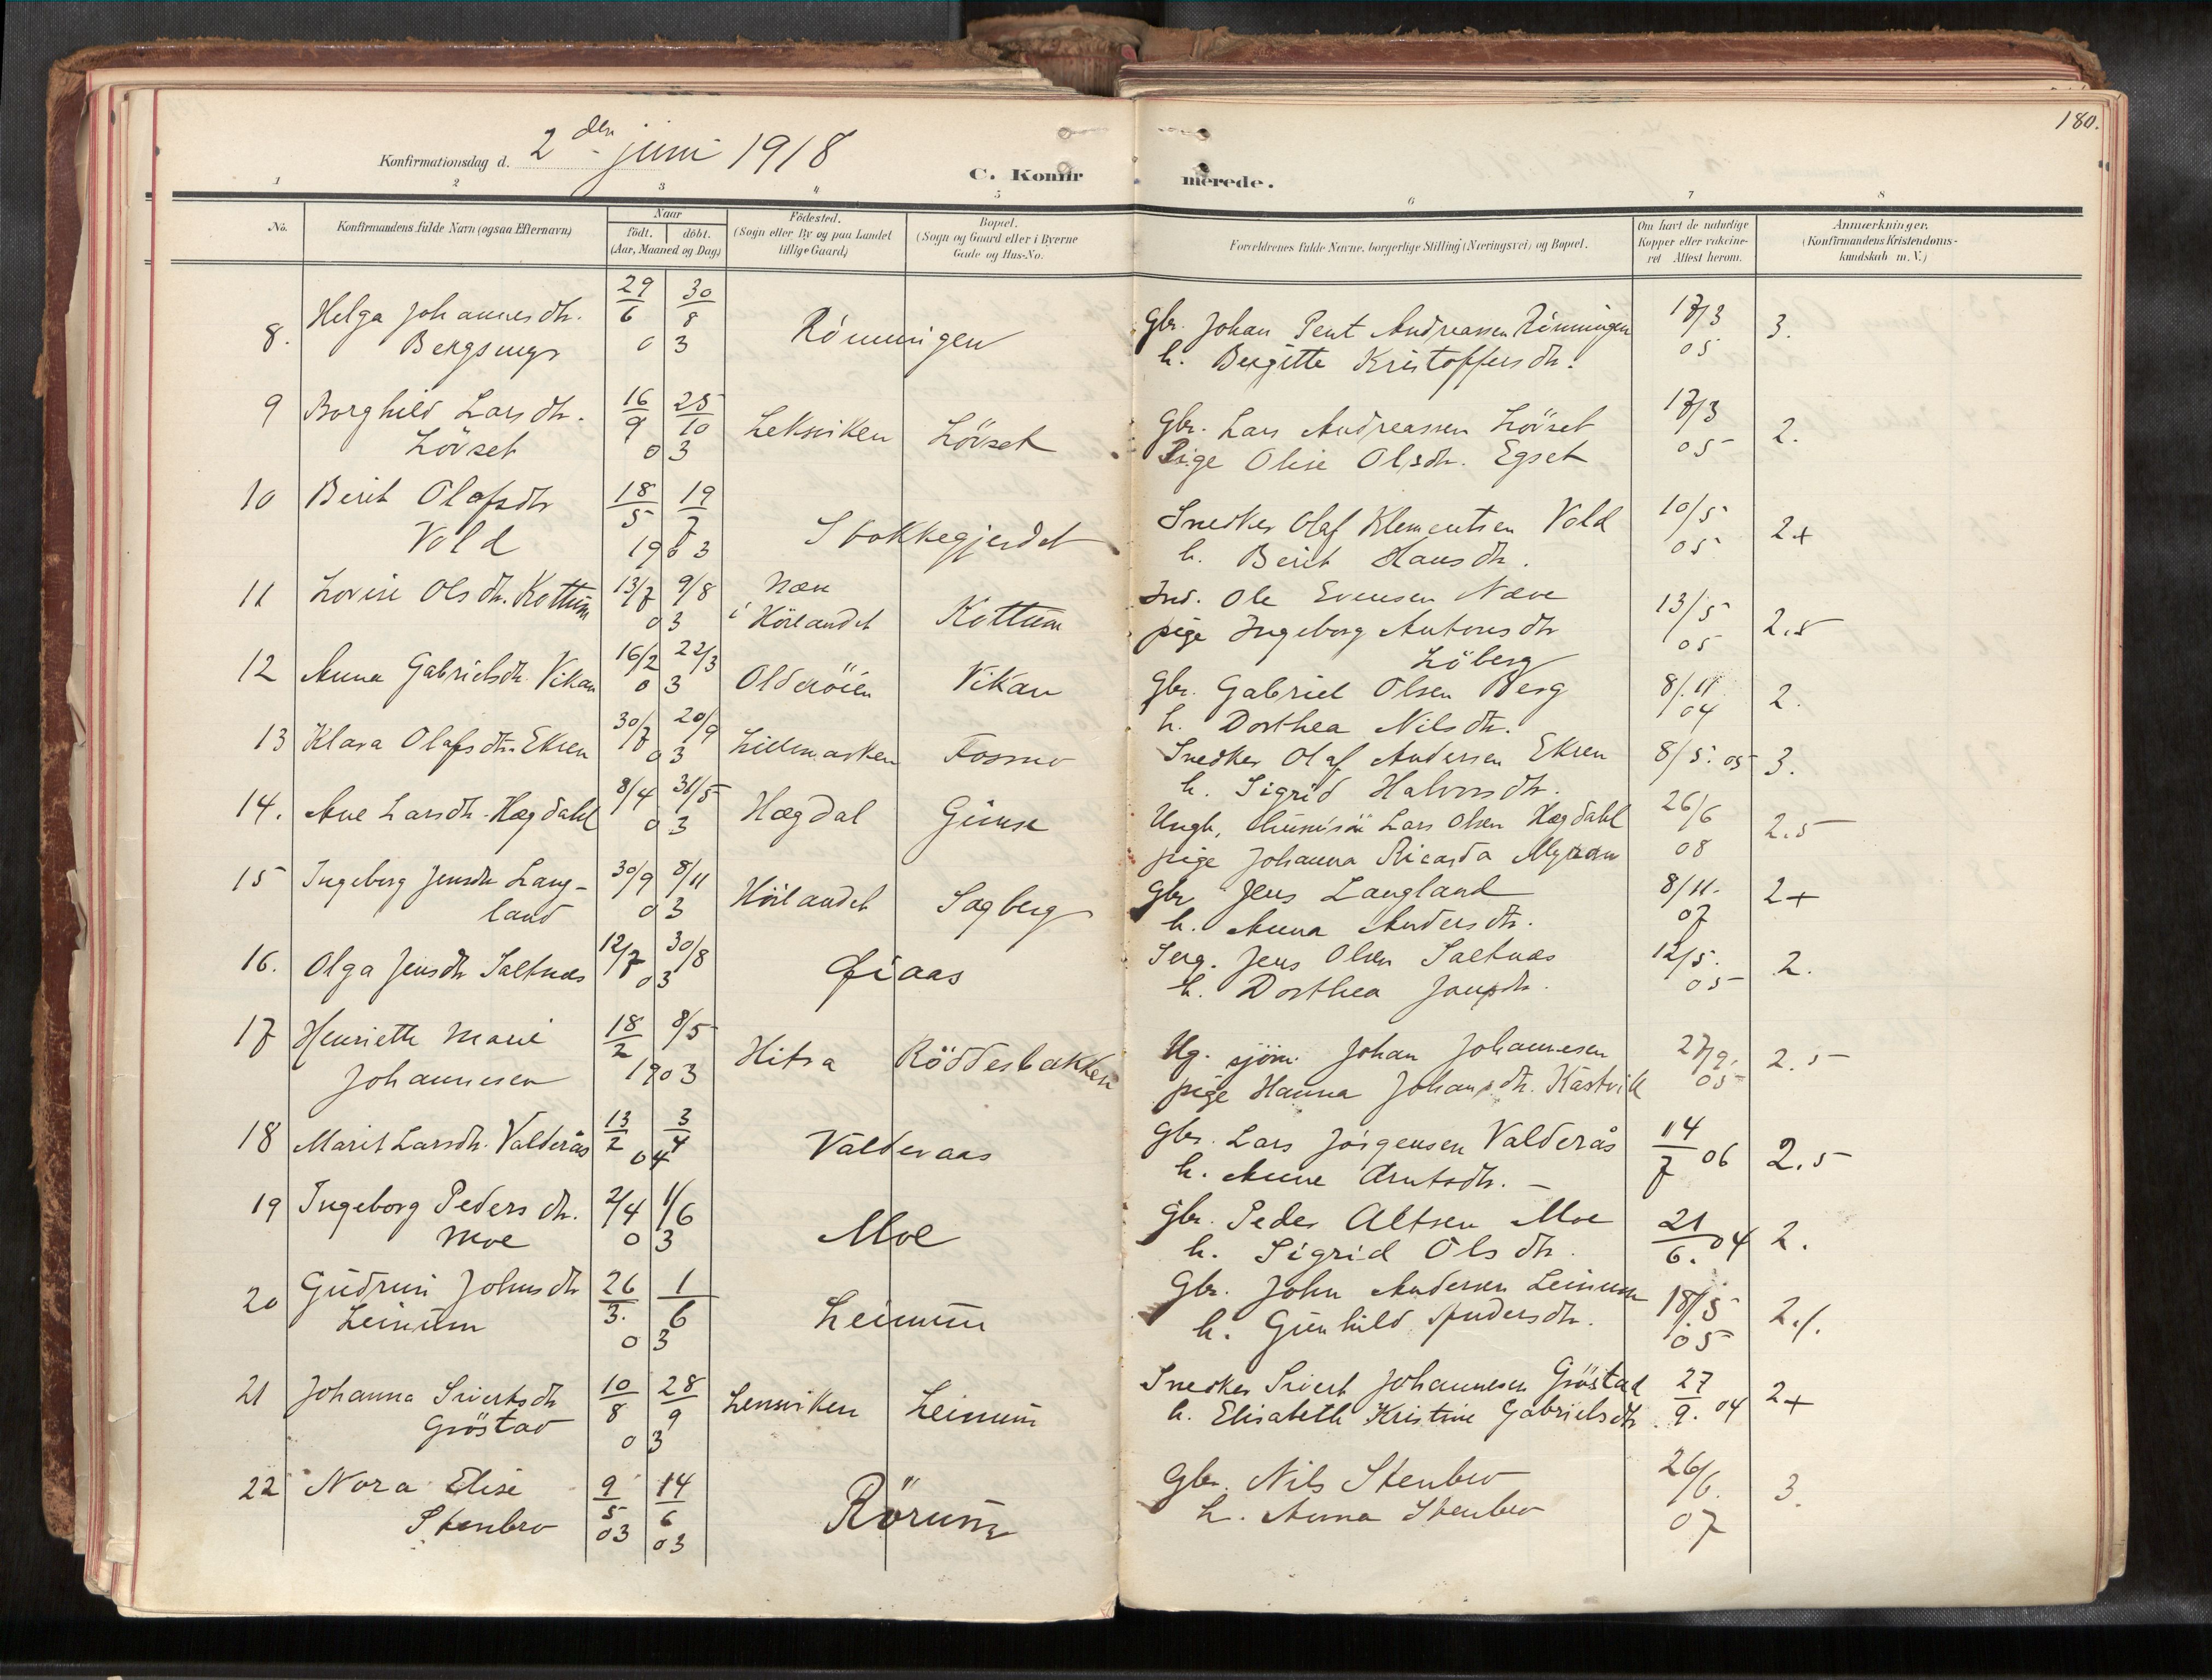 180.
Konfirmationsdag d. 2 den juni 1918
C. Konfir merede.
1 2 3 4 5 6 7 8
No. Konfirmandens fulde Navn (ogsaa Efternavn) Naar født. døbt. (Aar, Maaned og Dag) Fødested. (Sogn eller By og paa Landet tillige Gaard) Bopæl. (Sogn og Gaard eller i Byerne Gade og Hus-No. Forældrenes fulde Navne, borgerlige Stilling (Næringsvei) og Bopæl. Om havt de naturlige Kopper eller vakcineret Attest herom. Anmærkninger. (Konfirmandens Kristendomskundskab m. V.)
8. Helga Johannesdtr. 29/6 30/8 Rönningen Gbr. Johan Pent Andreassen Rönningen 17/3 3.
Bergsmyr 03 h. Bergitte Kristoffersdtr. 05
9 Borghild Larsdtr. 16/9 25/10 Leksviken Lövset Gbr. Lars Andreassen Lövset 17/3 2.
Lövset 03 Pige Oline Olsdtr. Egset 05
10 Berit Olafsdtr 18/5 19/7 Stokkegjerdet Snedker Olaf Klementsen Vold 10/5 2+
Vold 1903 h. Berit Hansdtr. 05
11 Lovise Olsdtr. Kottum 13/7 9/8 Næv Kottum Ind. Ole Evensen Næve 13/5 2.5
03 i Hölandet pige Ingeborg Antonsdtr 05
Löberg
12 Anna Gabrielsdtr. Vikan 16/2 22/3 Olderöien Vikan Gbr. Gabriel Olsen Berg 8/11 2.
03 h. Dorthea Nilsdtr. 04
13 Klara Olafsdtr. Ekren 30/7 20/9 Lillemarken Fosmo Snedker Olaf Andersen Ekren 8/5. 05 3.
03 h. Sigrid Halvorsdtr.
14. Ane Larsdtr. Hægdahl 8/4 31/5 Hægdal Gimse Ungk. Lars Olsen Hægdahl 26/6 2.5
03 pige Johanna Ricarda Myran 08
15 Ingeborg Jensdtr. Lang- 30/9 8/11 Hölandet Sagberg Gbr Jens Langland 8/11. 2+
land 03 h. Anna Andersdtr. 07
16. Olga Jensdtr Saltnæs 12/7 30/8 Öiaas Serg. Jens Olsen Saltnæs 12/5. 2.
03 h. Dorthea Jonsdtr. 05
17 Henriette Marie 18/2 8/5 Hitra Röddesbakken Ug. sjöm. Johan Johannesen 27/9. 2.5
Johannesen 1903 pige Hanna Johansdtr. Kästvik 05
18 Marit Larsdtr. Valderås 13/2 3/4 Valderaas Gbr. Lars Jörgensen Valderås 14/7 06 2.5
04 h. Anne Arntsdtr. -
19 Ingeborg Pedersdtr. 2/4 1/6 Moe Gbr. Peder Altsen Moe 21/6. 04 2.
Moe 03 h. Sigrid Olsdtr.
20 Gudrun Johnsdtr 26/3. 1/6 Leinum Gbr. John Andersen Leinum 18/5 2./.
Leinum 03 h. Gunhild Andersdtr. 05
21 Johanna Sivertsdtr 10/8 28/9 Lensviken Leinum Snedker Sivert Johannesen Gröstad 27/9. 04 2+
Gröstad 03 h. Elisabeth Kristine Gabrielsdtr.
22 Nora Elise 9/5 14/6 Rörum Gbr. Nils Stenbro 26/6. 3.
Stenbro 03 03 h. Anna Stenbro 07